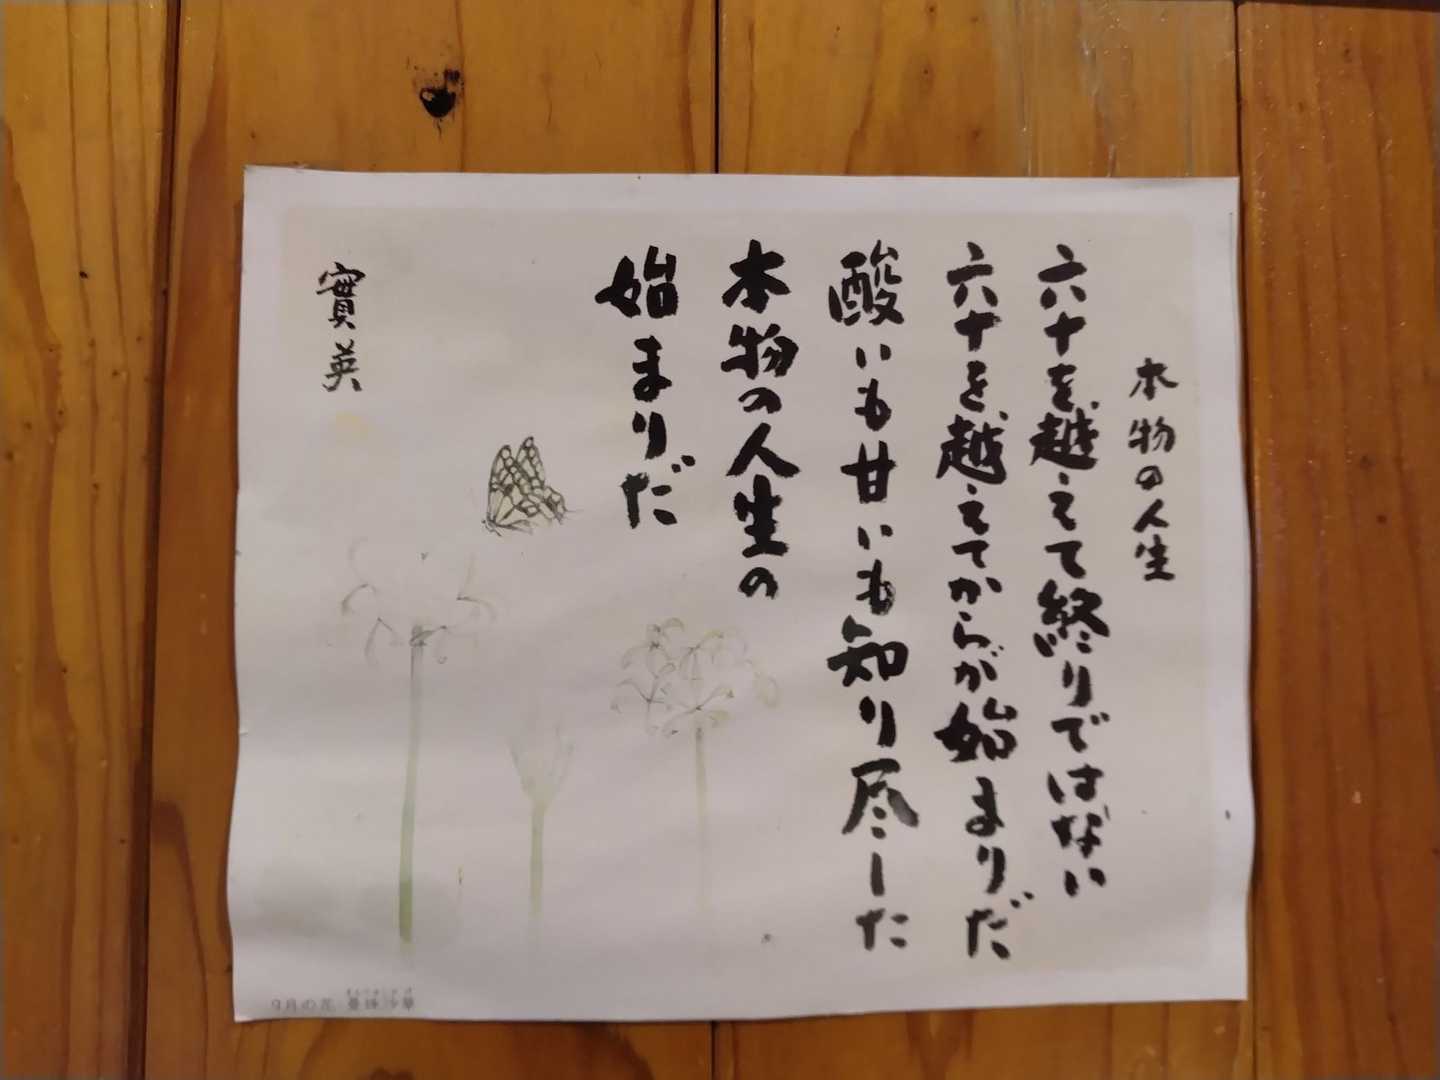 本物の人生
六十を越えて終りではない
六十を越えてからが始まりだ
酸いも甘いも知り尽した
本物の人生の
始まりだ
實英
9月の花 曼珠沙華
まんじゅしゃげ